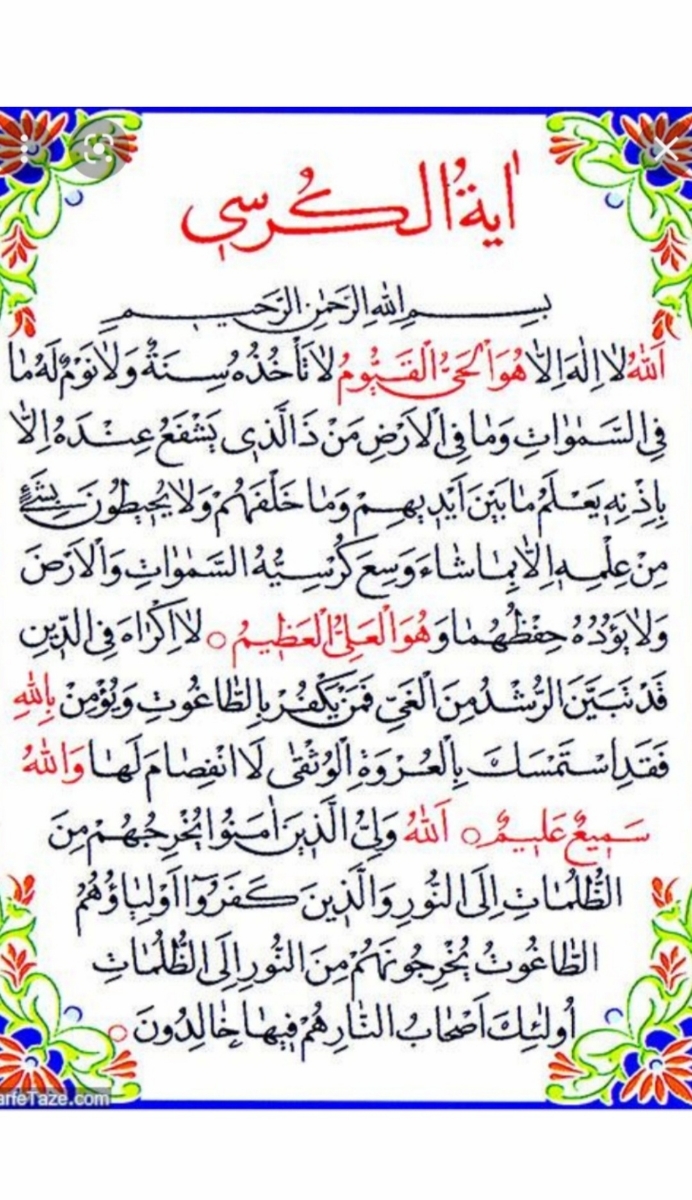 اٰیةُ الکُرسی
بِسْمِ اللّٰهِ الرَّحْمٰنِ الرَّحیمِ
اَللّٰهُ لا اِلٰهَ اِلاّٰ هُوَ اَلْحَیُّ الْقَیُّومُ لا تَأْخُذُهُ سِنَةٌ وَلا نَوْمٌ لَهُ مٰا
فِی السَّمٰوٰاتِ وَمٰا فِی الْاَرْضِ مَنْ ذَا الَّذی یَشْفَعُ عِنْدَهُ اِلاّٰ
بِاِذْنِهِ یَعْلَمُ مٰا بَیْنَ اَیْدیهِمْ وَمٰا خَلْفَهُمْ وَلا یُحیطُونَ بِشَیْءٍ
مِنْ عِلْمِهِ اِلاّٰ بِمٰا شٰاءَ وَسِعَ کُرْسِیُّهُ السَّمٰوٰاتِ وَالْاَرْضَ
وَلا یَؤُدُهُ حِفْظُهُمٰا وَ هُوَ الْعَلِیُّ الْعَظیمُ ○ لا اِکْرٰاهَ فِی الدّینِ
قَدْ تَبَیَّنَ الرُّشْدُ مِنَ الْغَیِّ فَمَنْ یَکْفُرْ بِالطّٰاغُوتِ وَیُؤْمِنْ بِاللّٰهِ
فَقَدِ اسْتَمْسَكَ بِالْعُرْوَةِ الْوُثْقیٰ لَا انْفِصٰامَ لَهٰا وَاللّٰهُ
سَمیعٌ عَلیمٌ ○ اَللّٰهُ وَلِیُّ الَّذینَ اٰمَنُوا یُخْرِجُهُمْ مِنَ
الظُّلُمٰاتِ اِلَی النُّورِ وَالَّذینَ کَفَرُوٓا اَوْلِیٰاؤُهُمُ
الطّٰاغُوتُ یُخْرِجُونَهُمْ مِنَ النُّورِ اِلَی الظُّلُمٰاتِ
اُولٰئِكَ اَصْحٰابُ النّٰارِ هُمْ فیهٰا خٰالِدُونَ ○
arfeTaze.com